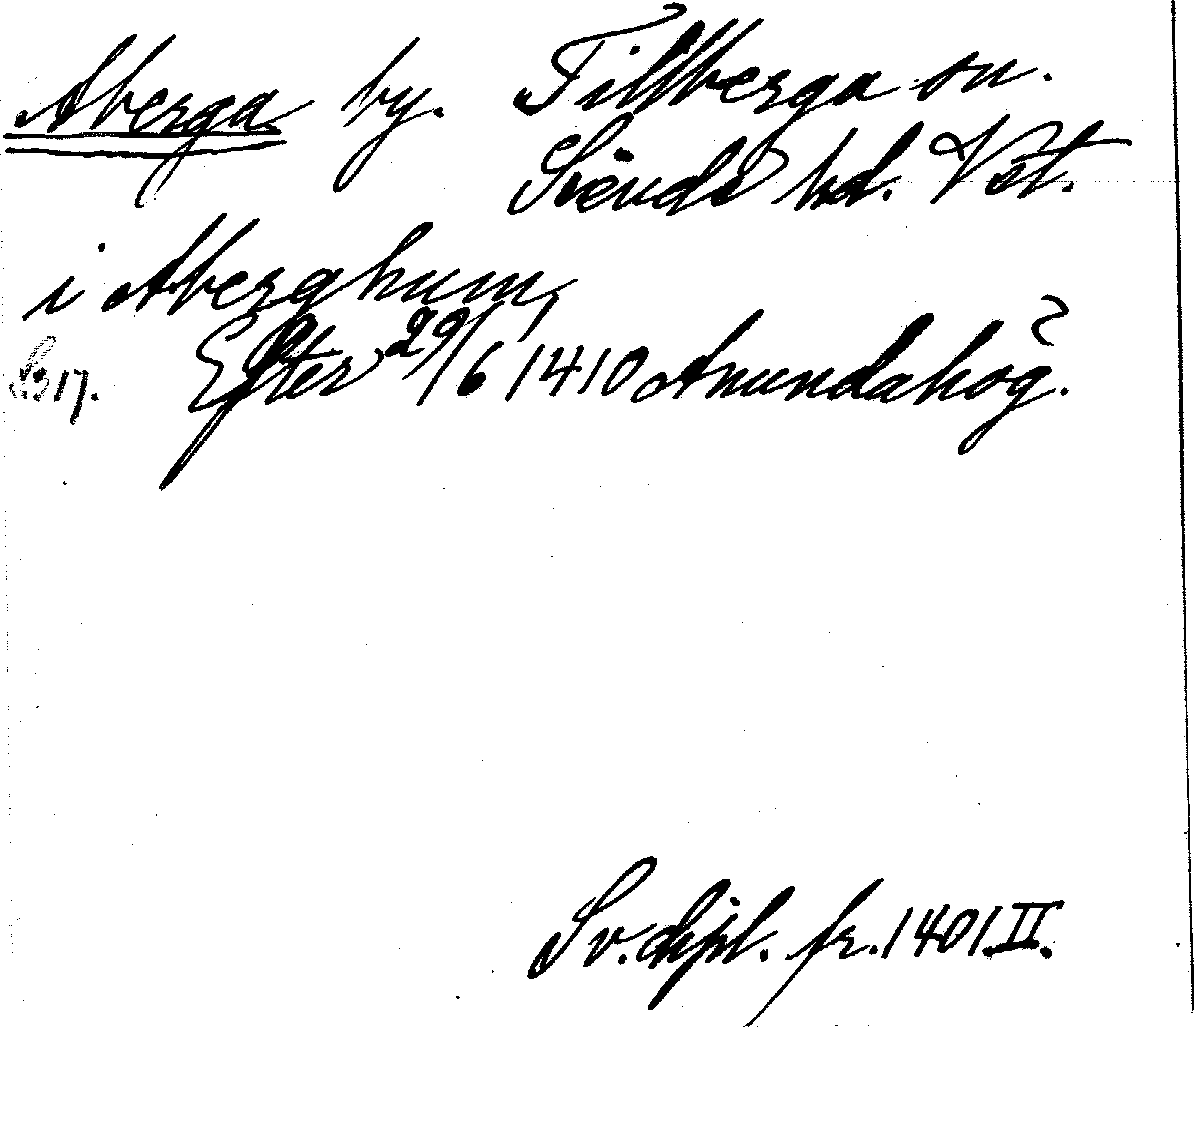 Aberga by. Tillberga sn.
Siende hd. Vst.
i Aberghum,
S. 317. Efter 29/6 1410 Anundahög?.
Sv. dipl. fr. 1401 II.